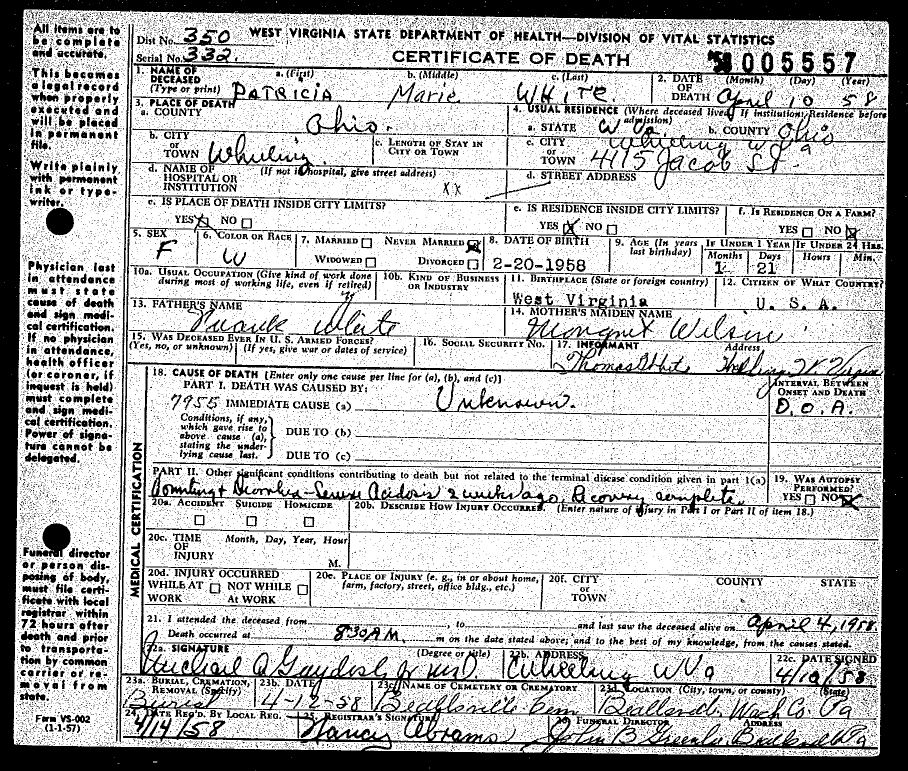 All items are to be complete and accurate.
This becomes a legal record when properly executed and will be placed in permanent file.
Write plainly with permanent ink or typewriter.
Physician last in attendance must state cause of death and sign medical certification. If no physician in attendance, health officer (or coroner, if inquest is held) must complete and sign medical certification. Power of signature cannot be delegated.
Funeral director or person disposing of body, must file certificate with local registrar within 72 hours after death and prior to transportation by common carrier or removal from state.
Form VS-002
(1-1-57)
WEST VIRGINIA STATE DEPARTMENT OF HEALTH—DIVISION OF VITAL STATISTICS
Dist No. 350
Serial No. 332
CERTIFICATE OF DEATH
58 005557
1. NAME OF DECEASED (Type or print)
a. (First) PATRICIA
b. (Middle) Marie
c. (Last) WHITE
2. DATE OF DEATH (Month) (Day) (Year) April 10 58
3. PLACE OF DEATH
a. COUNTY Ohio.
4. USUAL RESIDENCE (Where deceased lived. If institution: Residence before admission)
a. STATE W Va. b. COUNTY Ohio
b. CITY OR TOWN Wheeling
c. LENGTH OF STAY IN CITY OR TOWN
c. CITY OR TOWN Wheeling W Va
4115 Jacob St
d. NAME OF HOSPITAL OR INSTITUTION (If not in hospital, give street address) XX
d. STREET ADDRESS
e. IS PLACE OF DEATH INSIDE CITY LIMITS?
YES X NO
e. IS RESIDENCE INSIDE CITY LIMITS?
YES X NO
f. IS RESIDENCE ON A FARM?
YES NO X
5. SEX F
6. COLOR OR RACE W
7. MARRIED NEVER MARRIED X
WIDOWED DIVORCED
8. DATE OF BIRTH 2-20-1958
9. AGE (In years last birthday)
IF UNDER 1 YEAR Months 1 Days 21
IF UNDER 24 HRS. Hours Min.
10a. USUAL OCCUPATION (Give kind of work done during most of working life, even if retired)
10b. KIND OF BUSINESS OR INDUSTRY
11. BIRTHPLACE (State or foreign country) West Virginia
12. CITIZEN OF WHAT COUNTRY? U. S. A.
13. FATHER'S NAME White
14. MOTHER'S MAIDEN NAME Wilson
15. WAS DECEASED EVER IN U. S. ARMED FORCES? (Yes, no, or unknown) (If yes, give war or dates of service)
16. SOCIAL SECURITY No.
17. INFORMANT Address
Thomas
18. CAUSE OF DEATH [Enter only one cause per line for (a), (b), and (c)]
PART I. DEATH WAS CAUSED BY:
INTERVAL BETWEEN ONSET AND DEATH
7955 IMMEDIATE CAUSE (a) Unknown. D.O.A.
Conditions, if any, which gave rise to above cause (a), stating the underlying cause last.
DUE TO (b)
DUE TO (c)
PART II. Other significant conditions contributing to death but not related to the terminal disease condition given in part 1(a)
Vomiting & Diarrhea - Severe Acidosis 2 weeks ago. Recovery complete.
19. WAS AUTOPSY PERFORMED?
YES NO X
MEDICAL CERTIFICATION
20a. ACCIDENT SUICIDE HOMICIDE
20b. DESCRIBE HOW INJURY OCCURRED. (Enter nature of injury in Part I or Part II of item 18.)
20c. TIME OF INJURY Month, Day, Year, Hour M.
20d. INJURY OCCURRED
WHILE AT WORK NOT WHILE AT WORK
20e. PLACE OF INJURY (e. g., in or about home, farm, factory, street, office bldg., etc.)
20f. CITY OR TOWN COUNTY STATE
21. I attended the deceased from , to and last saw the deceased alive on April 4, 1958.
Death occurred at 8:30 A.M. m on the date stated above; and to the best of my knowledge, from the causes stated.
22a. SIGNATURE (Degree or title) Michael A Gaydosh Jr MD
22b. ADDRESS Wheeling W Va
22c. DATE SIGNED 4/10/58
23a. BURIAL, CREMATION, REMOVAL (Specify) Burial
23b. DATE 4-12-58
23c. NAME OF CEMETERY OR CREMATORY Beallsville Cem
23d. LOCATION (City, town, or county) (State) Beallsville Wash Co. Pa
24. DATE REC'D. BY LOCAL REG. 4/14/58
25. REGISTRAR'S SIGNATURE Nancy Abrams
26. FUNERAL DIRECTOR ADDRESS
John B Beallsville Pa